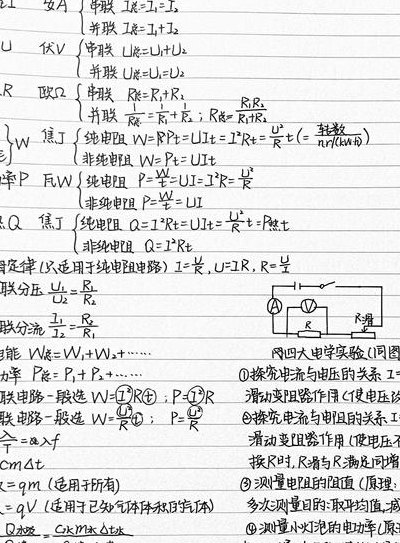 安A 串联 I总=I₁=I₂
并联 I总=I₁+I₂
U 伏V 串联 U总=U₁+U₂
并联 U总=U₁=U₂
R 欧Ω 串联 R总=R₁+R₂
并联 1/R总=1/R₁+1/R₂ ; R总=R₁R₂/R₁+R₂
W 焦J 纯电阻 W=Pt=UIt=I²Rt=U²/R t(=转数/nr/(kW·h))
非纯电阻 W=Pt=UIt
率P 瓦W 纯电阻 P=W/t=UI=I²R=U²/R
非纯电阻 P=W/t=UI
Q 焦J 纯电阻 Q=I²Rt=UIt=U²/R t=P热t
非纯电阻 Q=I²Rt
定律(只适用于纯电阻电路) I=U/R, U=IR, R=U/I
联分压 U₁/U₂=R₁/R₂
联分流 I₁/I₂=R₂/R₁
A V R R滑
电能 W总=W₁+W₂+……
功率 P总=P₁+P₂+……
联电路一般选 W=I²Rt ; P=I²R
联电路一般选 W=U²/R t ; P=U²/R
λf
cmΔt
=qm (适用于所有)
=qV (适用于已知气体体积的气体)
Q水吸 = C水m水Δt水
四大电学实验(同图
①探究电流与电压的关系 I=
滑动变阻器作用(使电压
②探究电流与电阻的关系 I
滑动变阻器作用(使电压不
换R时,R滑与R满足同增
③测量电阻的阻值(原理:
多次测量目的:取平均值,减
④测量小灯泡的电功率(原